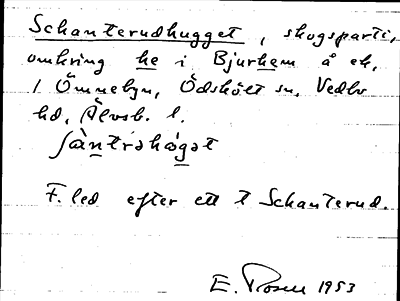 Schanterudhugget, skogsparti,
omkring he i Bjurhem å ek.
1 Ömnebyn, Ödskölt sn, Vedbo
hd, Älvsb. l.
F. led efter ett t Schanterud.
E. Rosen 1953